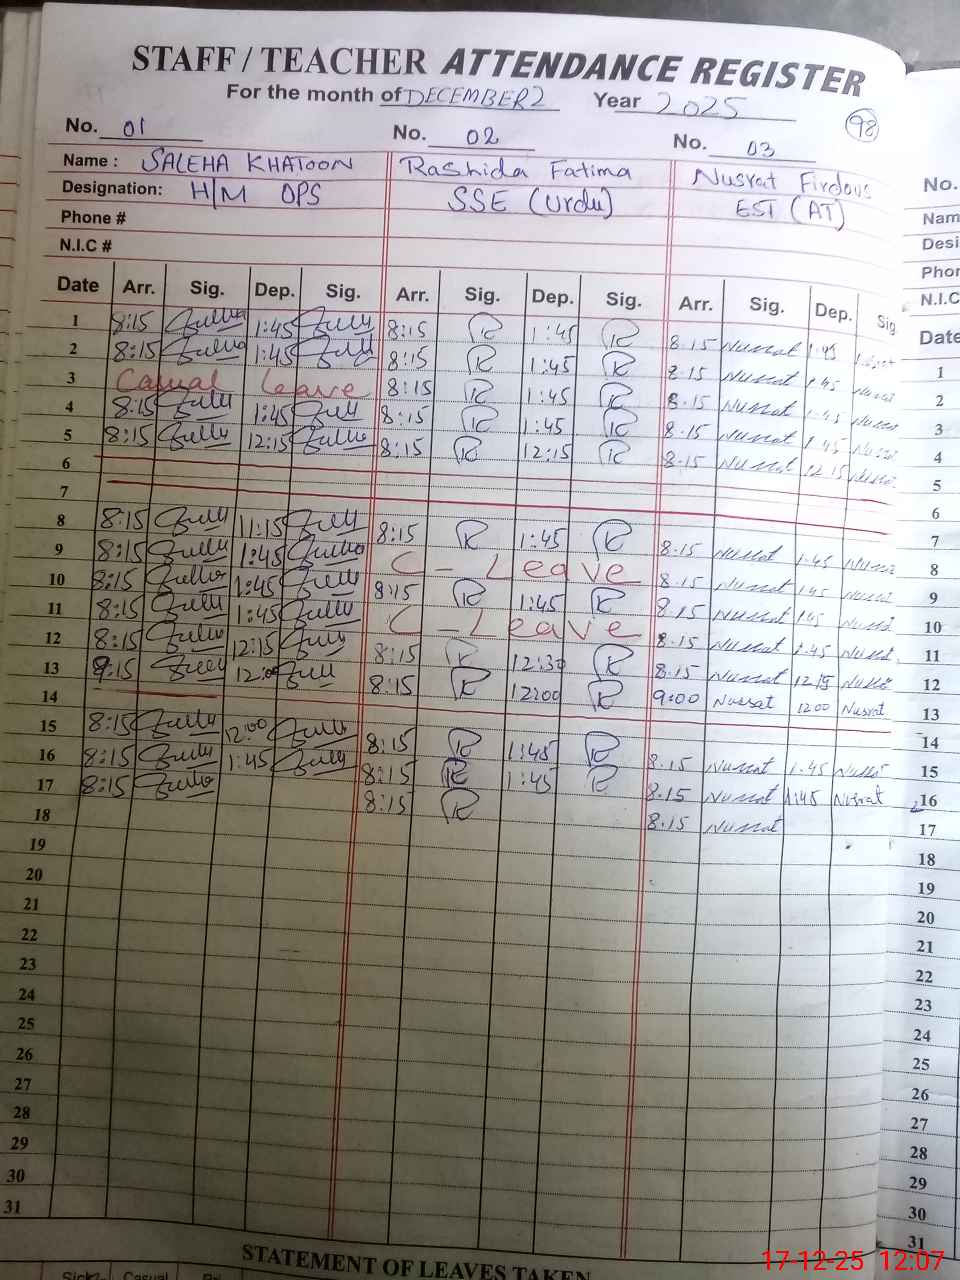 STAFF / TEACHER ATTENDANCE REGISTER
For the month of DECEMBER2 Year 2025
98
No. 01 No. 02 No. 03
Name : SALEHA KHATOON Rashida Fatima Nusrat Firdous
Designation: H/M OPS SSE (Urdu) EST (AT)
Phone #
N.I.C #
Date Arr. Sig. Dep. Sig. Arr. Sig. Dep. Sig. Arr. Sig. Dep. Sig
1 8:15 1:45 8:15 R 1:45 R 8.15 Nusrat 1.45 Nusrat
2 8:15 1:45 8:15 R 1:45 R 8.15 Nusrat 1.45 Nusrat
3 Casual Leave 8:15 R 1:45 R 8.15 Nusrat 1.45 Nusrat
4 8:15 1:45 8:15 R 1:45 R 8.15 Nusrat 1.45 Nusrat
5 8:15 12:15 8:15 R 12:15 R 8.15 Nusrat 12.15 Nusrat
6
7
8 8:15 11:15 8:15 R 1:45 R 8.15 Nusrat 1.45 Nusrat
9 8:15 1:45 C - Leave 8.15 Nusrat 1.45 Nusrat
10 8:15 1:45 8:15 R 1:45 R 8.15 Nusrat 1.45 Nusrat
11 8:15 1:45 C - Leave 8.15 Nusrat 1.45 Nusrat
12 8:15 12:15 8:15 R 12:30 R 8.15 Nusrat 12.15 Nusrat
13 9:15 12:00 8:15 R 12:00 R 9:00 Nusrat 12 00 Nusrat
14
15 8:15 12:00 8:15 R 1:45 R 8.15 Nusrat 1.45 Nusrat
16 8:15 1:45 8:15 R 1:45 R 8.15 Nusrat 1:45 Nusrat
17 8:15 8:15 R 8.15 Nusrat
18
19
20
21
22
23
24
25
26
27
28
29
30
31
STATEMENT OF LEAVES TAKEN
Sick Casual
No.
Nam
Desi
Phon
N.I.C
Date
1
2
3
4
5
6
7
8
9
10
11
12
13
14
15
16
17
18
19
20
21
22
23
24
25
26
27
28
29
30
31
17-12-25 12:07